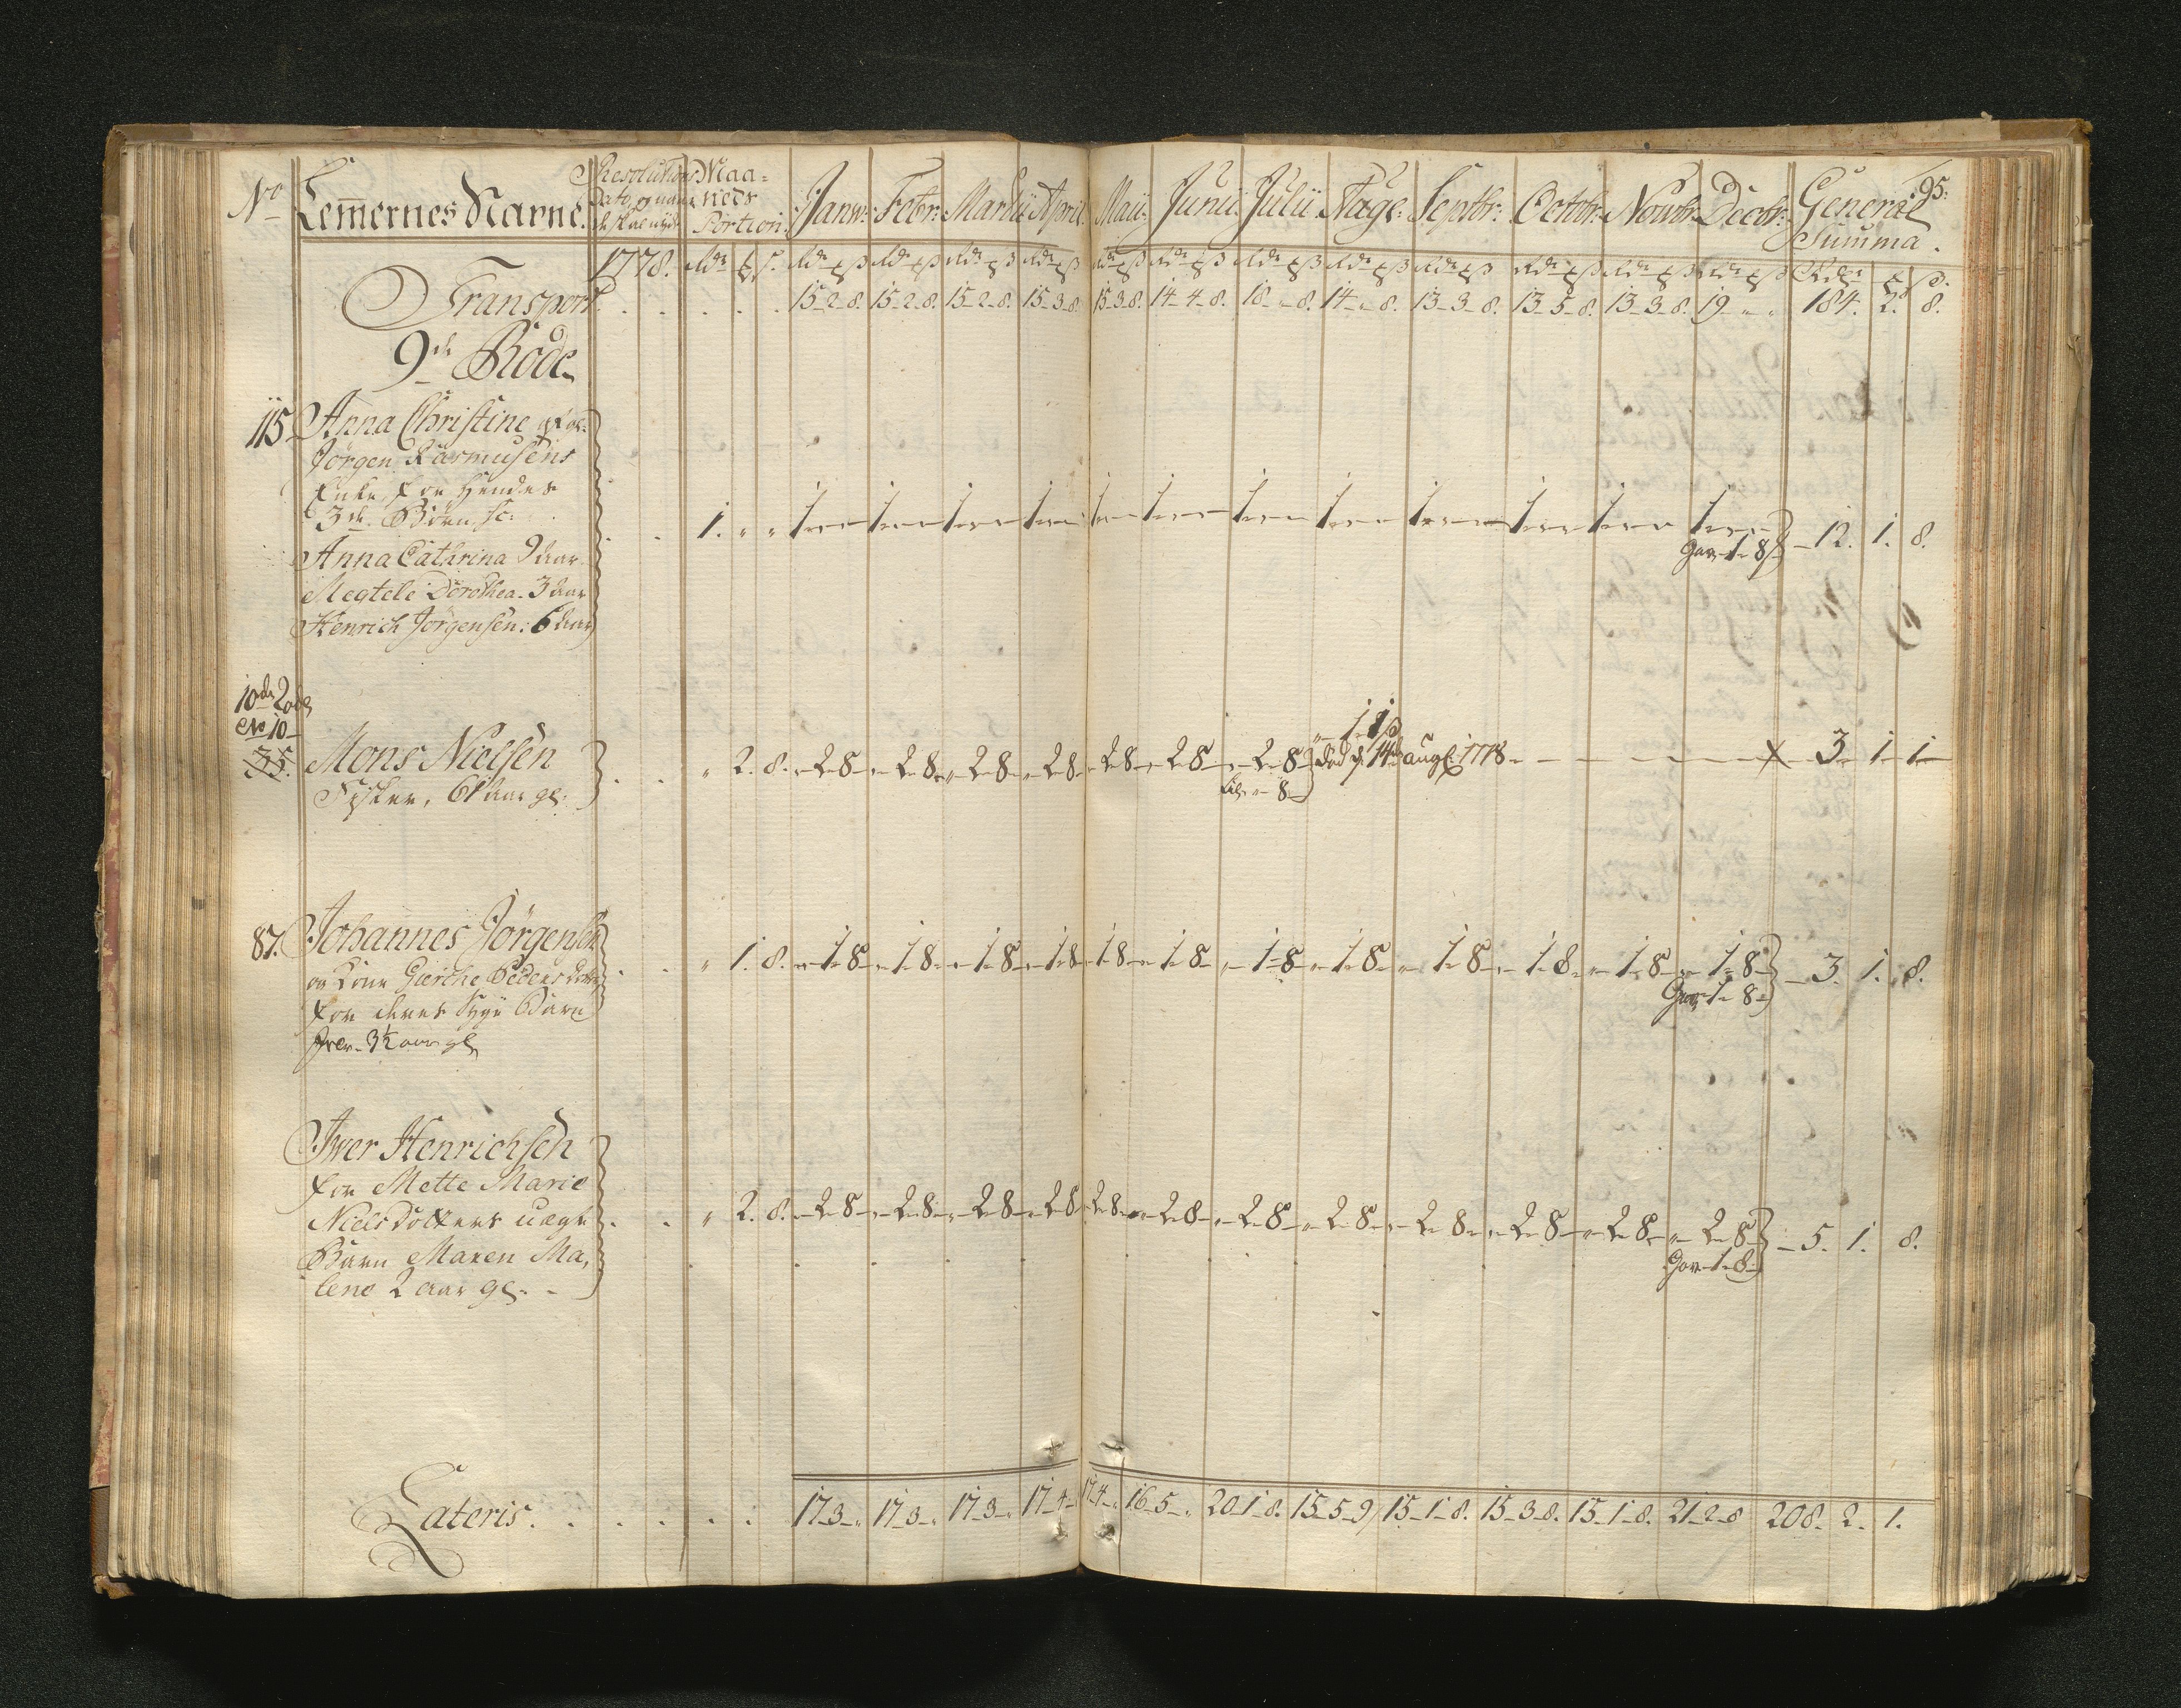 95.
No Lemernes Navne. Resolutions Dato, og naar de skal nyde Maaneds Portion. Janw: Febr: Martii April. Maii. Junii. Julii. Aug: Septbr: Octobr: Novbr: Decbr: General Summa.
1778. Rdr ß
Transport . . . . . 15-2-8. 15-2-8. 15-2-8. 15-3-8. 15-3-8. 14-4-8. 18-"-8. 14-"-8. 13-3-8. 13-5-8. 13-3-8. 19-"-" 184. 2. 8.
9de Rode
115. Anna Christine
Jörgen Rasmusens
Enke, for Hendes
3de Börn, sc:
1. " " 1-"-" 1-"-" 1-"-" 1-"-" 1-"-" 1-"-" 1-"-" 1-"-" 1-"-" 1-"-" 1-"-" 1-"-" - 12. 1. 8.
Gav-1-8
Anna Cathrina 9 Aar
Megtele Dorothea. 3 Aar
Henrich Jörgensen: 6 Aar
10de Rode
No 10
35. Mons Nielsen . . " 2. 8. "-2-8 "-2-8 "-2-8 "-2-8 "-2-8 "-2-8 "-2-8 "-1-1 død d. 14de augl: 1778 - - - - x 3-1-1-
Fisker, 61 Aar gl: "-8-
87. Johannes Jörgensen . . " 1. 8. "-1-8 "-1-8 "-1-8 "-1-8 "-1-8 "-1-8 "-1-8 "-1-8 "-1-8 "-1-8 "-1-8 "-1-8 - 3. 1. 8.
og Kone Gierche Peders datter Gav-1-8-
for deres Syge Barn
3½ aar gl
Iver Henrichsen
for Mette Marie
Niels dotters uægte . . " 2. 8. "-2-8 "-2-8 "-2-8 "-2-8 "-2-8 "-2-8 "-2-8 "-2-8 "-2-8 "-2-8 "-2-8 "-2-8 - 5. 1. 8.
Barn Maren Ma, Gav-1-8-
lene 2 Aar gl. -
Lateris. . . . . . 17-3-" 17-3-" 17-3-" 17-4-" 17-4-" 16-5-" 20-1-8. 15-5-9 15-1-8. 15-3-8. 15-1-8. 21-2-8 208. 2. 1.